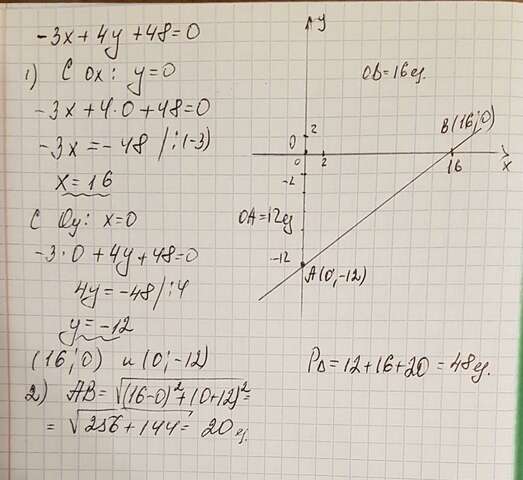 -3x+4y+48=0
1) С Ox: y=0
-3x+4·0+48=0
-3x=-48 /:(-3)
x=16
С Oy: x=0
-3·0+4y+48=0
4y=-48/:4
y=-12
(16;0) и (0;-12)
2) AB=√(16-0)²+(0+12)²=
=√256+144= 20 ед.
y
OB=16ед.
B(16;0)
0 2
0 2 16 x
-2
OA=12ед
-12
A(0;-12)
P△=12+16+20=48ед.